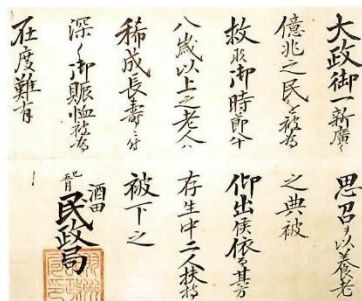 大政御一新廣ク
億兆之民ヲ被為
救候御時節八十
八歳以上之老人ハ
稀成長壽ニ付
深ク御賑恤被為
在度難有
思召ヲ以養老
之典被
仰出候依之其方
存生中二人扶持
被下之
酒田
民政局